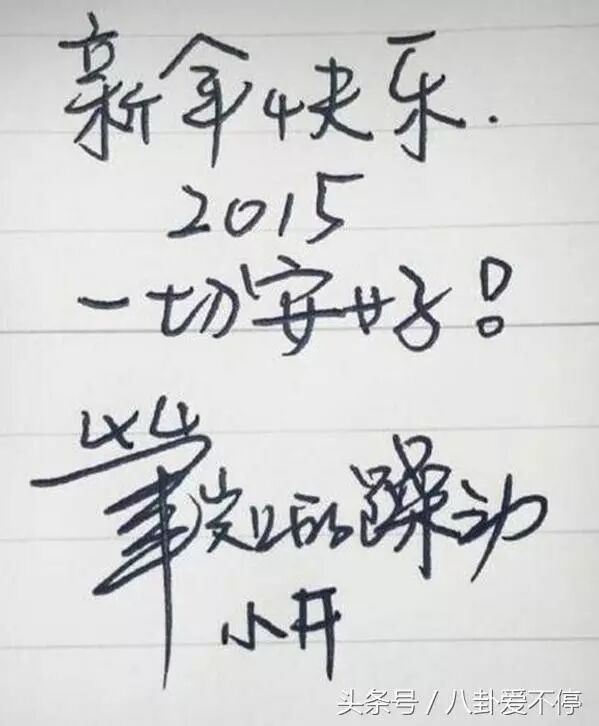 新年快乐.
2015
一切安好!
的躁动
小开
头条号 / 八卦爱不停